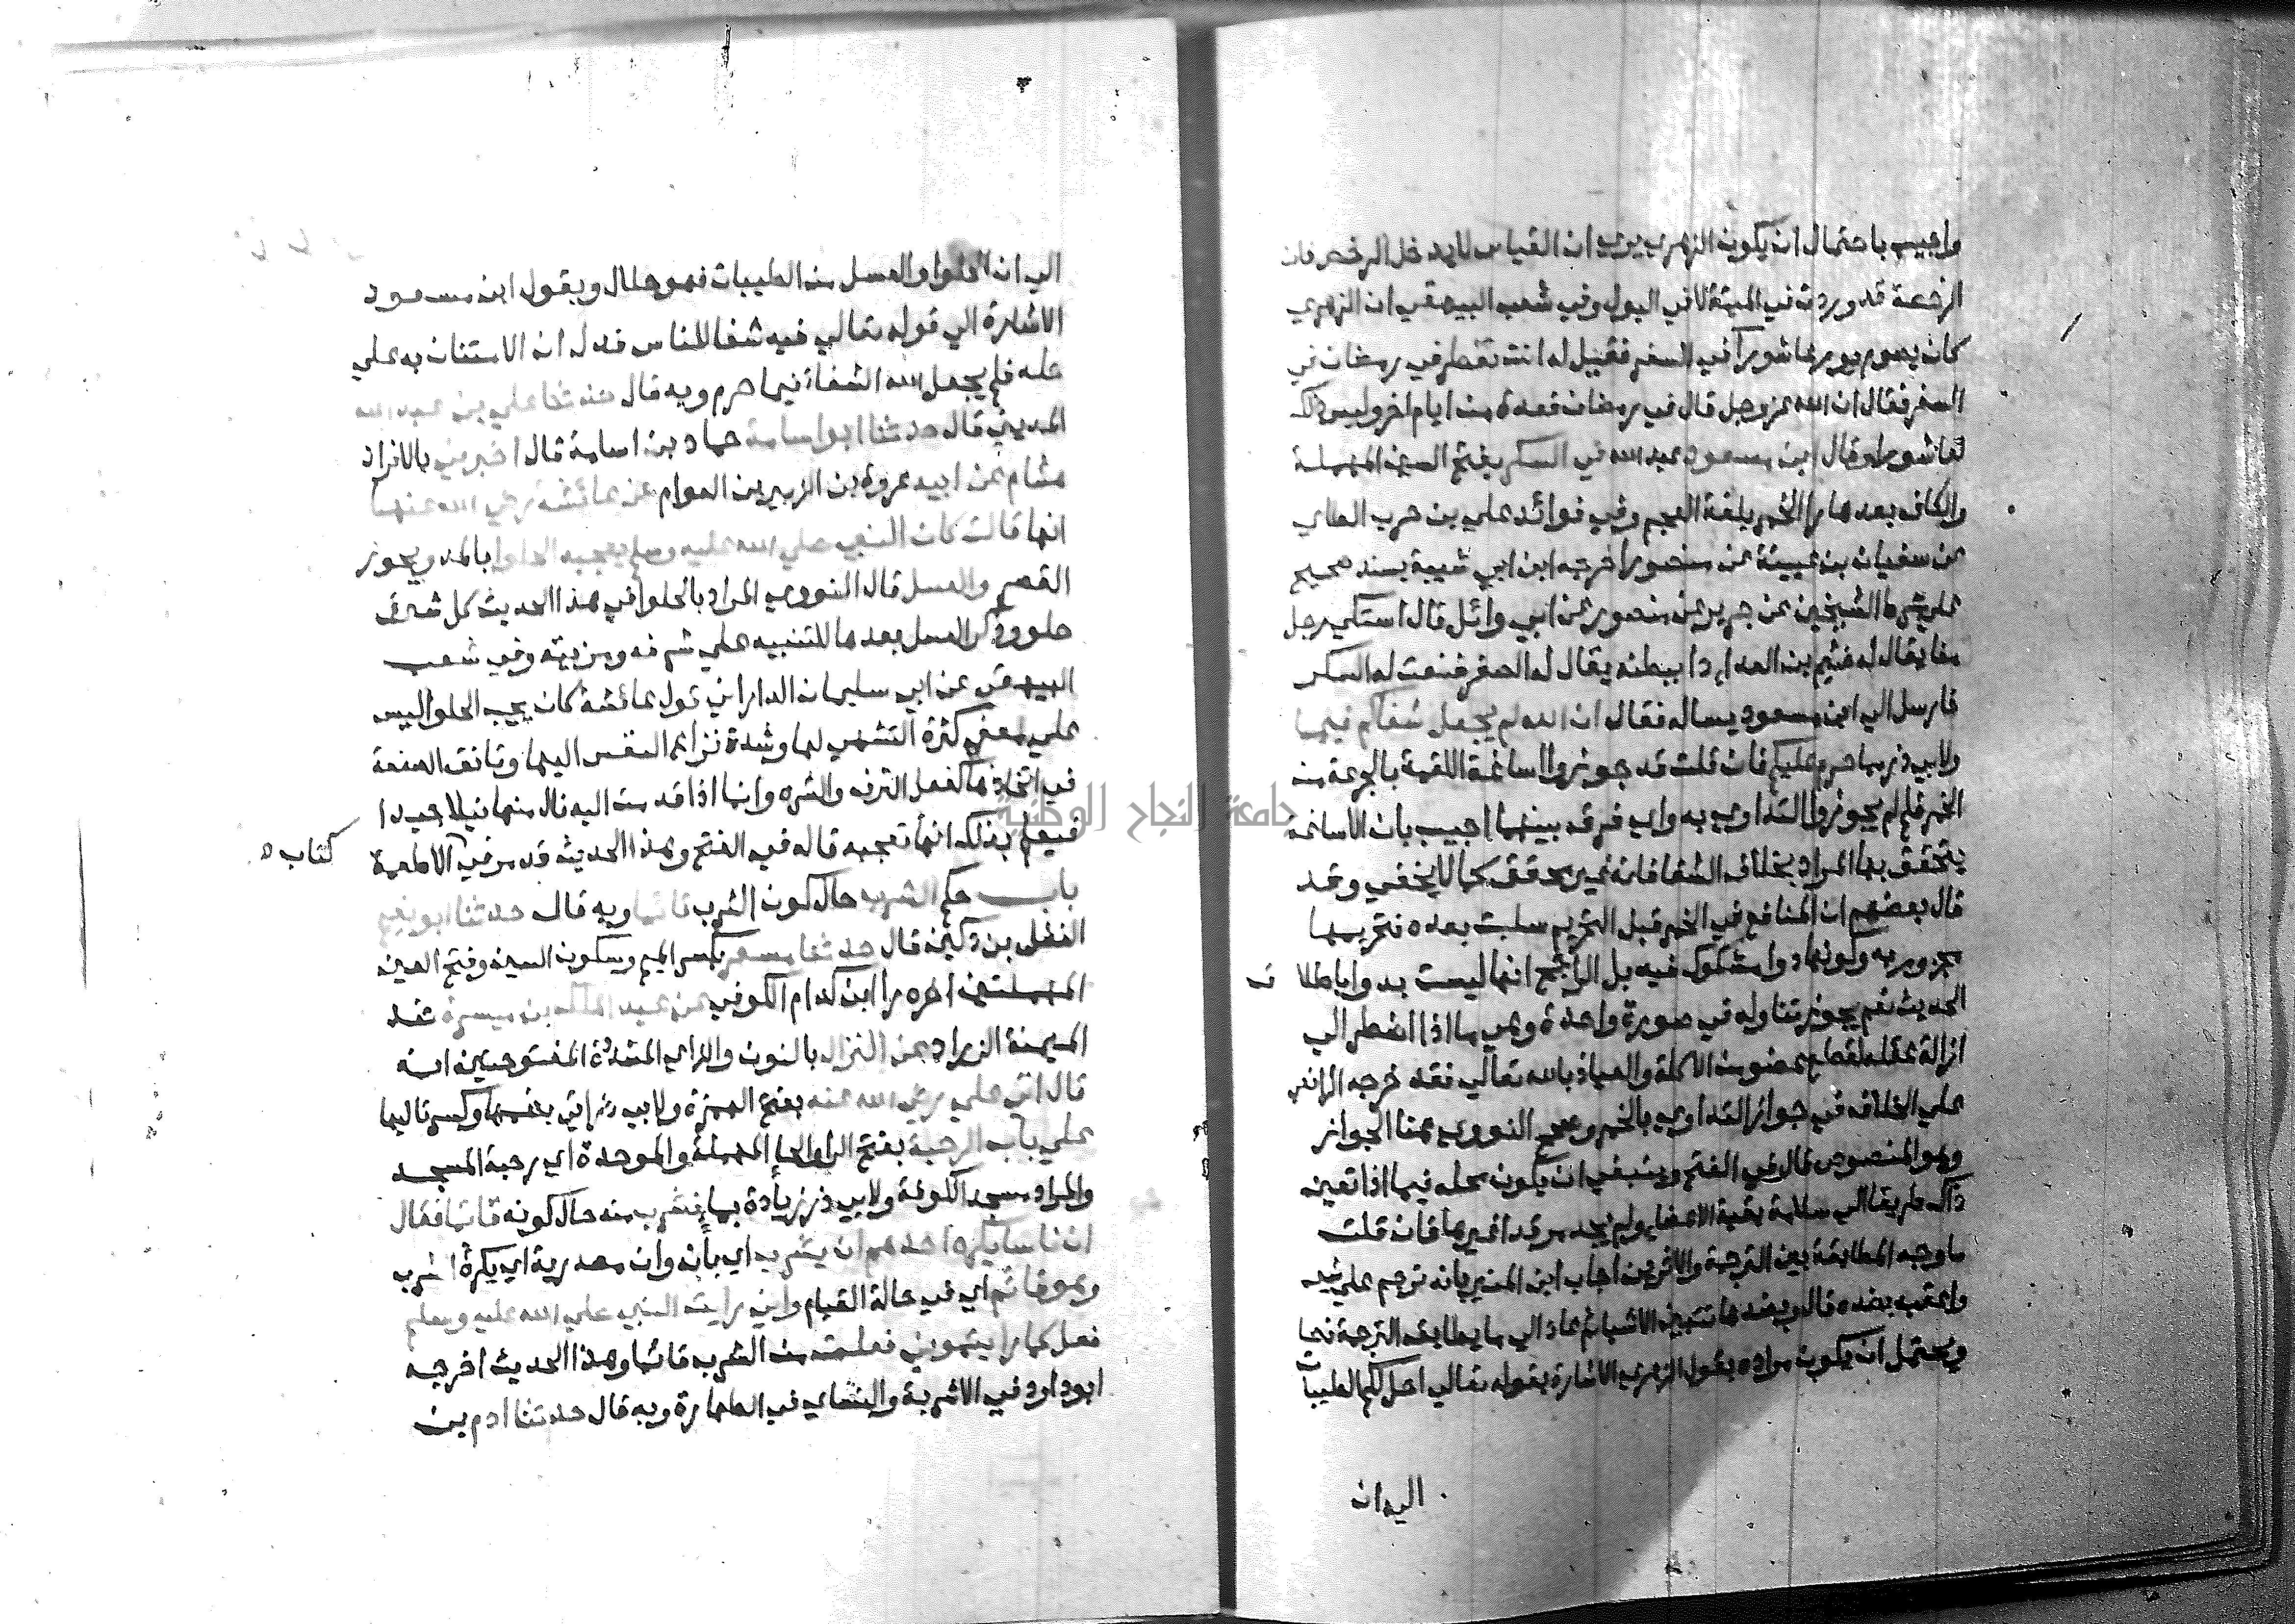 واجيب باحتمال ان يكون الزهري يري ان القياس لا يدخل الرخص فان
الرخصة قد وردت في الميتة لا في البول وفي شعب البيهقي ان الزهري
كان يصوم يوم عاشورا في السفر فقيل له انت تفطر في رمضان في
السفر فقال ان الله عز وجل قال في رمضان فعدة من ايام اخر وليس ذلك
لعاشورا وقال ابن مسعود عبد الله في السكر بفتح السين المهملة
والكاف بعدها را الخمر بلغة العجم وفي فوائد علي بن حرب الطاي
عن سفيان بن عيينة عن منصور اخرجه ابن ابي شيبة بسند صحيح
علي شرط الشيخين عن جرير عن منصور عن ابي وائل قال اشتكي رجل
منا يقال له خثيم بن العدا دا ببطنه يقال له الصفر فنعت له السكر
فارسل الي ابن مسعود يساله فقال ان الله لم يجعل شفاكم فيما
ولابي ذر مما حرم عليكم فان قلت قد جوزوا اساغة اللقمة بالجرعة من
الخمر فلم لم يجوزوا التداوي به واي فرق بينهما اجيب بان الاساغة
يتحقق بها المراد بخلاف الشفا فانه غير محقق كما لا يخفي وقد
قال بعضهم ان المنافع في الخمر قبل التحريم سلبت بعده فتحريمها
مجزوم به وكونها دوا مشكوك فيه بل الراجح انها ليست بدوا باطلاق
الحديث نعم يجوز تناوله في صورة واحدة وهي ما اذا اضطر الي
ازالة عقله لقطع عضو من الاكلة والعياذ بالله تعالي فقد خرجه الرافعي
علي الخلاف في جواز التداوي بالخمر وصحح النووي هنا الجواز
وهو المنصوص قال في الفتح وينبغي ان يكون محله فيما اذا تعين
ذلك طريقا الي سلامة بقية الاعضا ولم يجد مرقدا غيرها فان قلت
ما وجه المطابقة بين الترجمة والاثرين اجاب ابن المنير بانه ترجم علي شيء
واعقبه بضده قال وبضدها تتبين الاشيا ثم عاد الي ما يطابق الترجمة نصا
ويحتمل ان يكون مراده بقول الزهري الاشارة بقوله تعالي احل لكم الطيبات
الي ان
الي ان الحلوا والعسل من الطيبات فهو حلال وبقول ابن مسعود
الاشارة الي قوله تعالي فيه شفا للناس فدل ان الامتنان به علي
حله فلم يجعل الله الشفا فيما حرم وبه قال حدثنا علي بن عبد الله
المديني قال حدثنا ابو اسامة حماد بن اسامة قال اخبرني بالافراد
هشام عن ابيه عروة بن الزبير بن العوام عن عائشة رضي الله عنها
انها قالت كان النبي صلي الله عليه وسلم يعجبه الحلوا بالمد ويجوز
القصر والعسل قال النووي المراد بالحلوا في هذا الحديث كل شي
حلو وذكر العسل بعدها للتنبيه علي شرفه ومزيته وفي شعب
البيهقي عن ابي سليمان الداراني قول عائشة كان يحب الحلوا ليس
علي معني كثرة التشهي لها وشدة نزاع النفس اليها وتانق الصنعة
في اتخاذها كفعل الترفه والشره وانما اذا قدمت اليه نال منها نيلا جيدا
فيعلم بذلك انها تعجبه قاله في الفتح وهذا الحديث قد مر في الاطعمة
كتاب
باب حكم الشرب حال كون الشرب قائما وبه قال حدثنا ابو نعيم
الفضل بن دكين قال حدثنا مسعر بكسر الميم وسكون السين وفتح العين
المهملتين اخره را ابن كدام الكوفي عن عبد الملك بن ميسرة ضد
الميمنة الزراد عن النزال بالنون والزاي المشددة المفتوحتين انه
قال اتي علي رضي الله عنه بفتح الهمزة ولابي ذر اتي بضمها وكسر تاليها
علي باب الرحبة بفتح الرا والحا المهملة والموحدة اي رحبة المسجد
والمراد مسجد الكوفة ولابي ذر زيادة بما فشرب منه حال كونه قائما فقال
ان ناسا يكره احدهم ان يشرب اي بان وان مصدرية اي يكره الشرب
وهو قائم اي في حالة القيام واني رايت النبي صلي الله عليه وسلم
فعل كما رايتموني فعلت من الشرب قائما وهذا الحديث اخرجه
ابو داود في الاشربة والنساي في الطهارة وبه قال حدثنا ادم بن
جامعة النجاح الوطنية